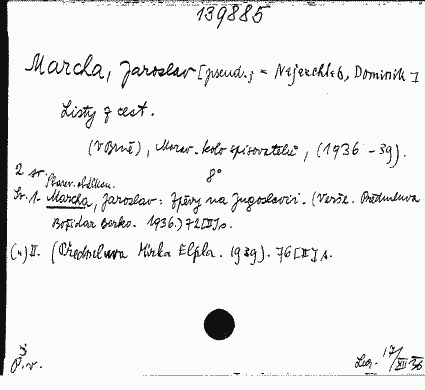 139885
Marcha, Jaroslav [pseud.; = Nejezchleb, Dominik]
Listy z cest.
(V Brně), Morav. kolo spisovatelů, (1936 - 39).
2 sv. 8°
Sv. 1. Marcha, Jaroslav: Zpěvy na Jugoslavii. (Verše. Předmluva
Božidar Borko. 1936.) 72 [II] s.
(4) II. (Předmluva Mirka Elpla. 1939). 76 [II] s.
P. v. Leg. 17/XII 36